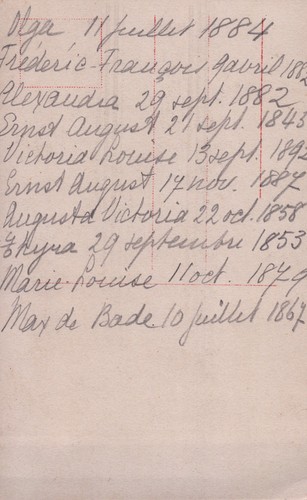 Olga 11 juillet 1884
Frédéric-François 9 avril 1882
Alexandra 29 sept. 1882
Ernst August 21 sept. 1843
Victoria Louise 13 sept. 1892
Ernst August 17 nov. 1887
Augusta Victoria 22 oct. 1858
Thyra 29 septembre 1853
Marie Louise 11 oct. 1879
Max de Bade 10 juillet 1867